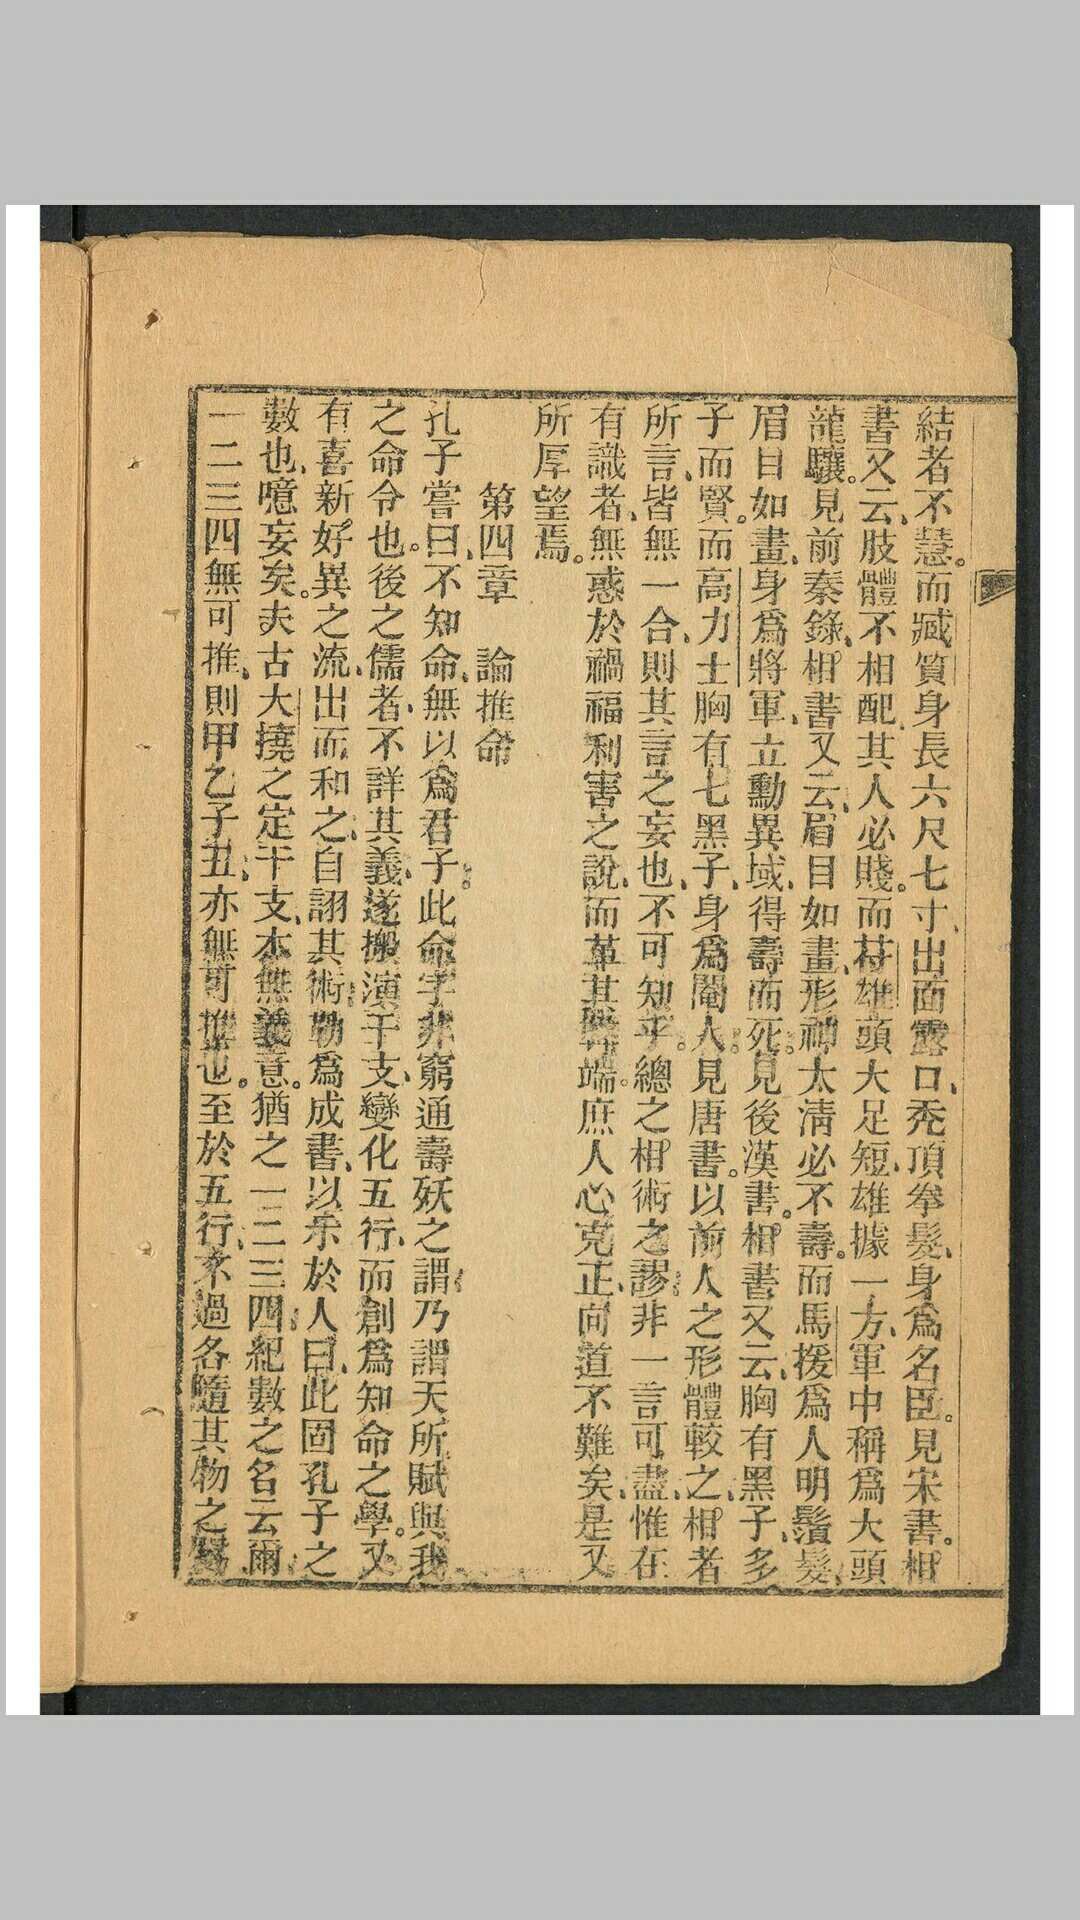 結者不慧。而臧質身長六尺七寸、出面露口、禿頂拳髮、身爲名臣。見宋書。相
書又云、肢體不相配、其人必賤。而苻雄頭大足短、雄據一方、軍中稱爲大頭
龍驤。見前秦錄、相書又云、眉目如畫、形神太淸必不壽。而馬援爲人明鬚髮、
眉目如畫、身爲將軍、立勳異域、得壽而死。見後漢書。相書又云、胸有黑子、多
子而賢。而高力士胸有七黑子、身爲閹人。見唐書。以前人之形體較之、相者
所言、皆無一合、則其言之妄也、不可知乎。總之相術之謬、非一言可盡、惟在
有識者、無惑於禍福利害之說、而革其異端。庶人心克正、向道不難矣、是又
所厚望焉。
第四章　論推命
孔子嘗曰、不知命、無以爲君子。此命字非窮通壽殀之謂、乃謂天所賦與我
之命令也。後之儒者、不詳其義、遂搬演干支、變化五行、而創爲知命之學。又
有喜新好異之流、出而和之、自詡其術、勒爲成書、以示於人曰、此固孔子之
數也、噫妄矣。夫古大撓之定干支、本無義意。猶之一二三四、紀數之名云爾、
一二三四無可推、則甲乙子丑、亦無可推也。至於五行、不過各隨其物之